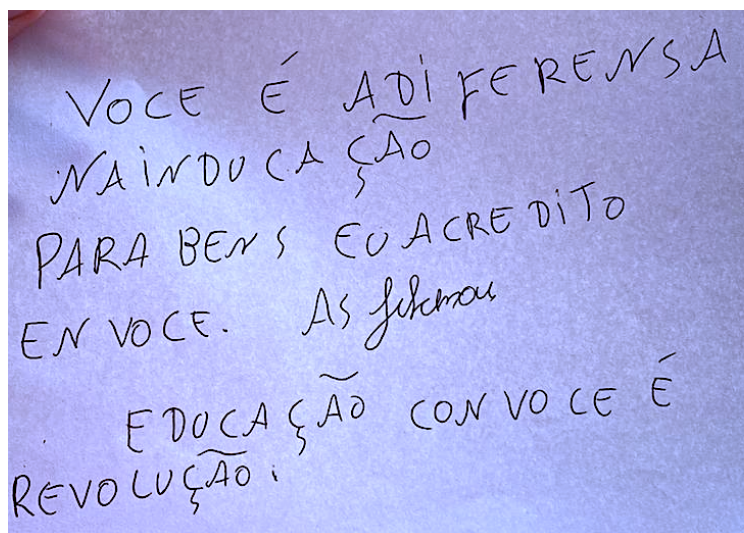 VOCE É ADIFERENSA
NAINDUCAÇÃO
PARABENS EU ACREDITO
EN VOCE. AS
EDUCAÇÃO CON VOCE É
REVOLUÇÃO.